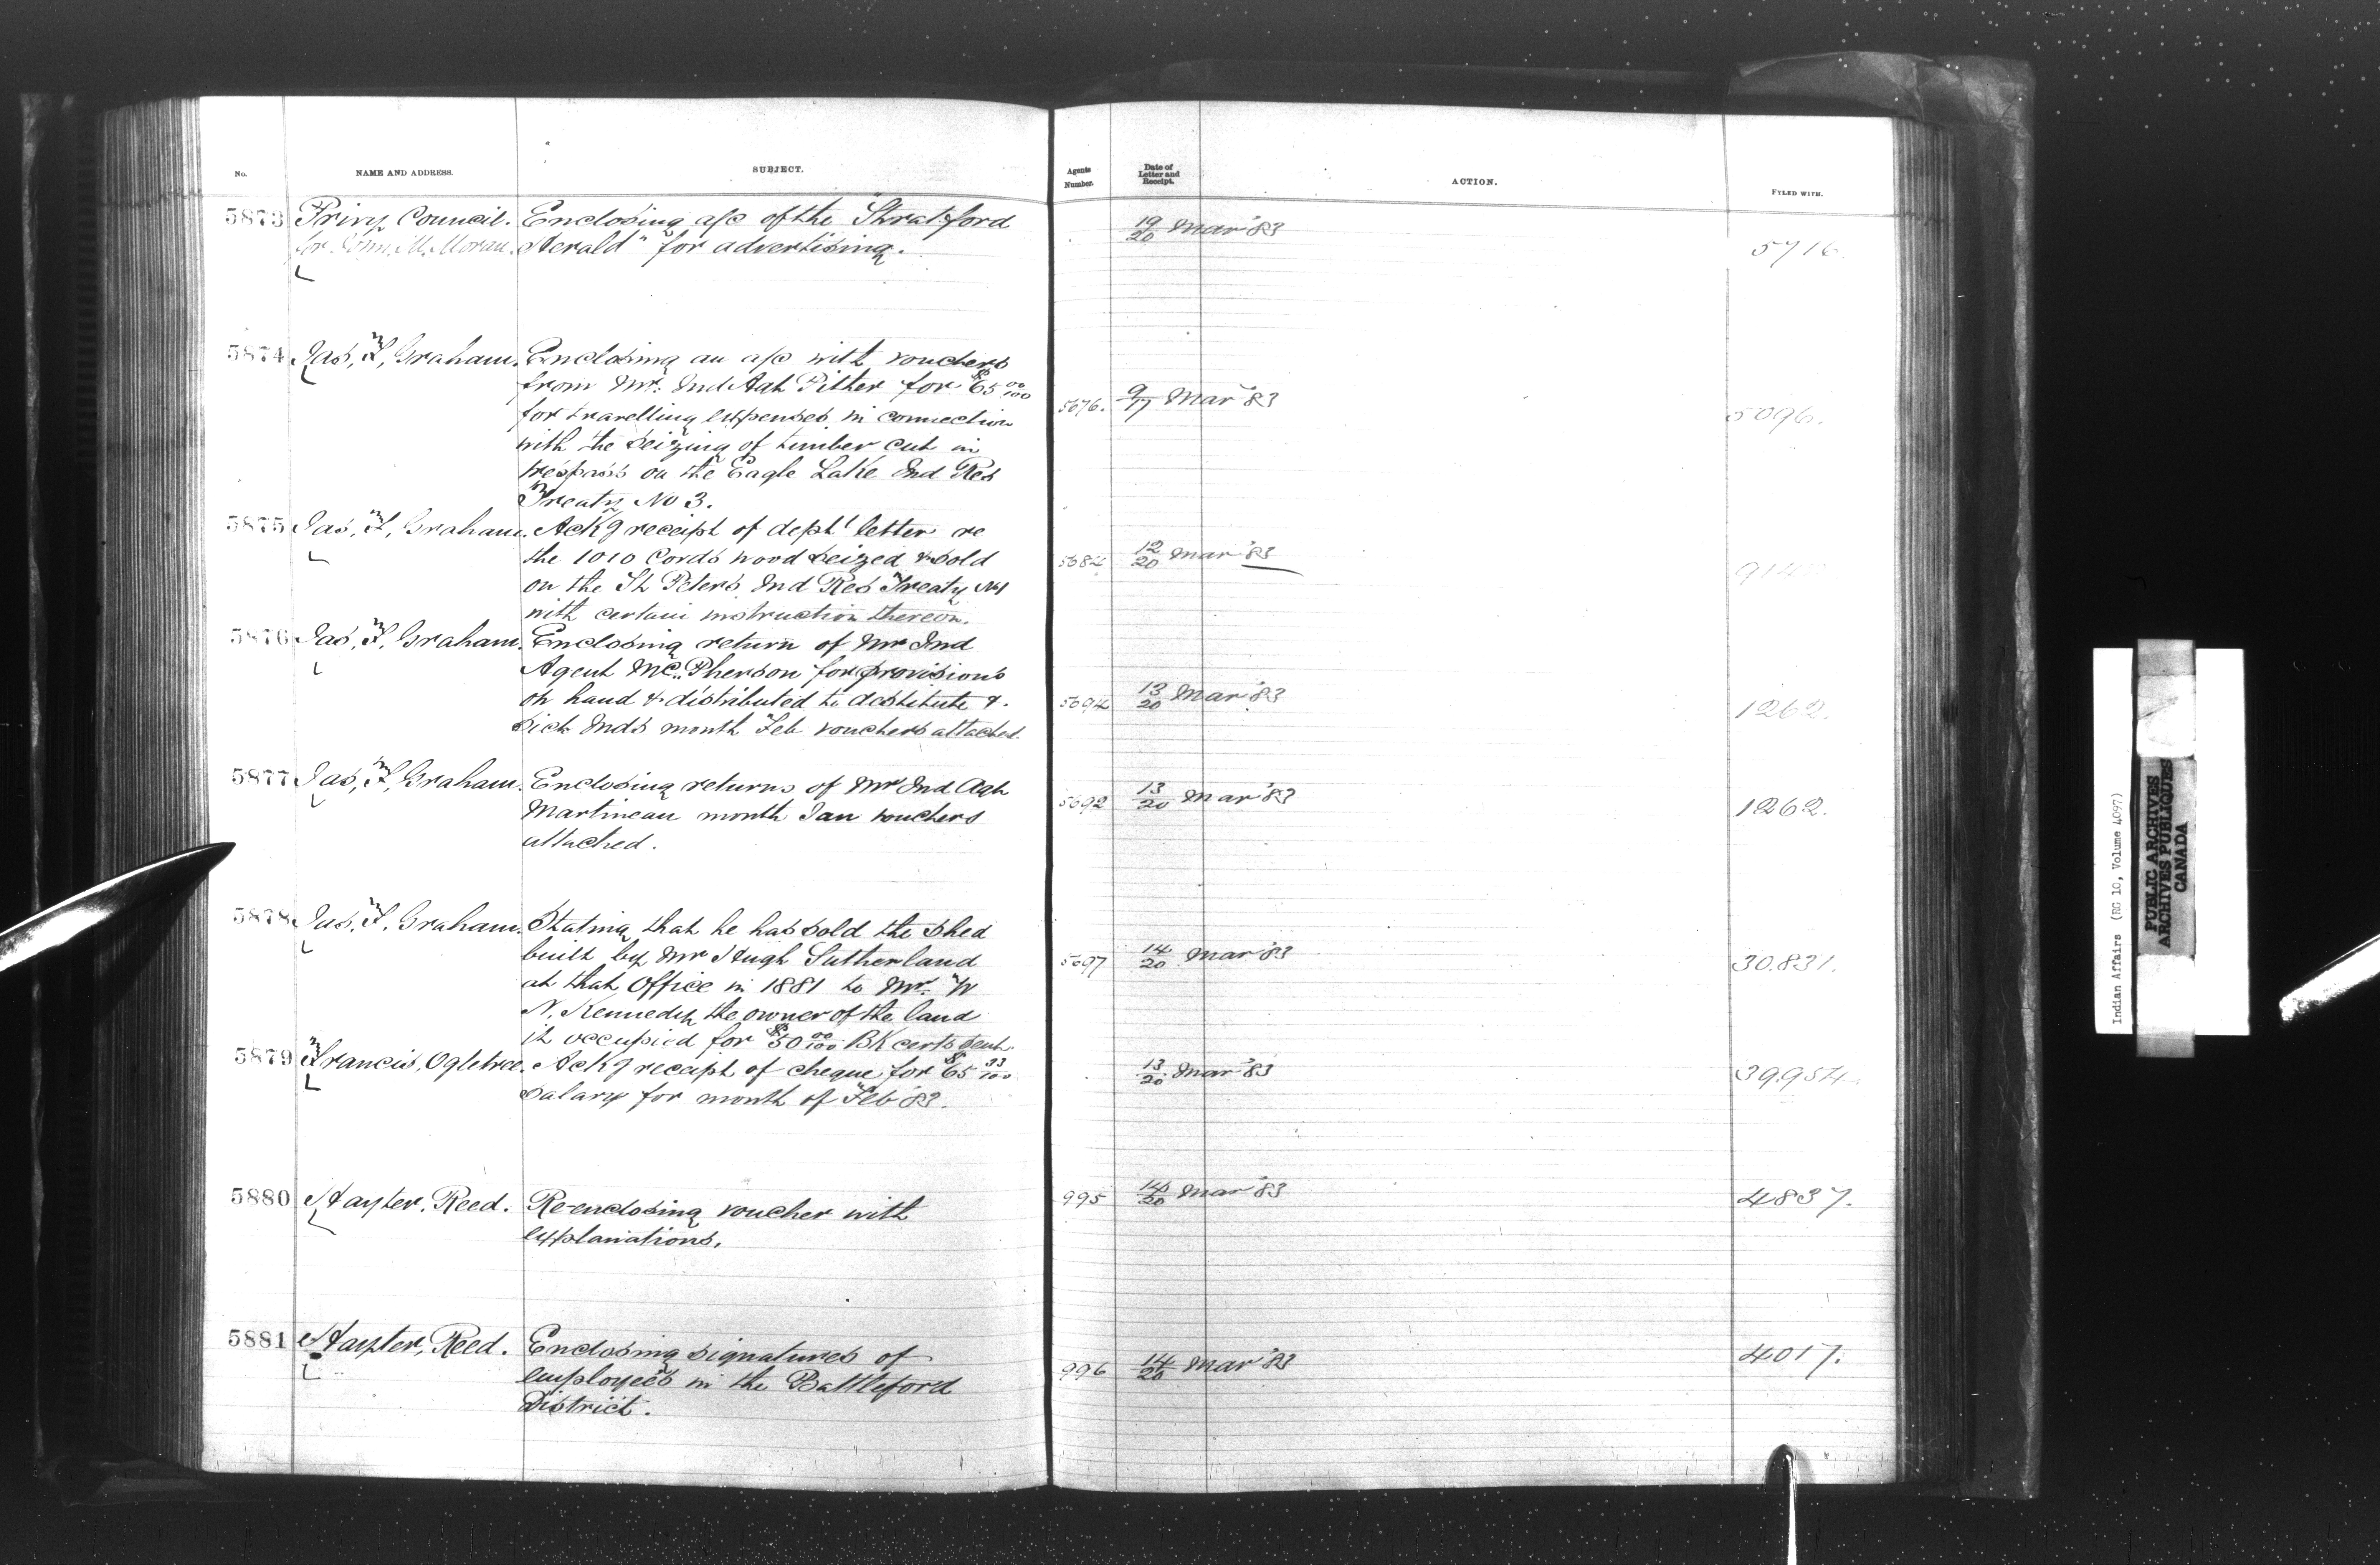 No. NAME AND ADDRESS. SUBJECT. Agents Number. Date of Letter and Receipt. ACTION. FYLED WITH.
5873 Privy Council. Enclosing a/c of the "Stratford 19/20 Mar '83
for John M. Moran. Herald" for advertising. 5716.
5874 Jas, F, Graham. Enclosing an a/c with vouchers
from Mr. Ind Agt Pither for $65 00/100 5676. 9/17 Mar '83 5096.
for travelling expenses in connection
with the seizing of timber cut in
trespass on the Eagle Lake Ind Res
Treaty No 3.
5875 Jas, F, Graham. Ackg receipt of dept' letter re
the 1010 Cords wood seized & sold 5684 12/20 Mar '83
on the St Peters Ind Res Treaty No 1
with certain instruction thereon.
5876 Jas, F, Graham. Enclosing return of Mr Ind
Agent McPherson for provisions
on hand & distributed to destitute & 5694 13/20 Mar '83 1262.
sick Inds month Feb vouchers attached.
5877 Jas, F, Graham. Enclosing returns of Mr Ind Agt
Martineau month Jan vouchers 5692 13/20 Mar '83 1262.
attached.
5878 Jas, F, Graham. Stating that he has sold the shed
built by Mr Hugh Sutherland 5697 14/20 Mar '83 30.831.
at that Office in 1881 to Mr. W
N. Kennedy the owner of the land
it occupied for $50 00/100 BK certs sent.
5879 Francis, Ogletree. Ackg receipt of cheque for $65 33/100 13/20 Mar '83 39.954.
Salary for month of Feb '83.
5880 Hayter, Reed. Re-enclosing voucher with 995 14/20 Mar '83 4837.
explanations.
5881 Hayter, Reed. Enclosing signatures of
employees in the Battleford 996 14/20 Mar '83 4017.
District.
Indian Affairs (RG 10, Volume 4097)
PUBLIC ARCHIVES
ARCHIVES PUBLIQUES
CANADA